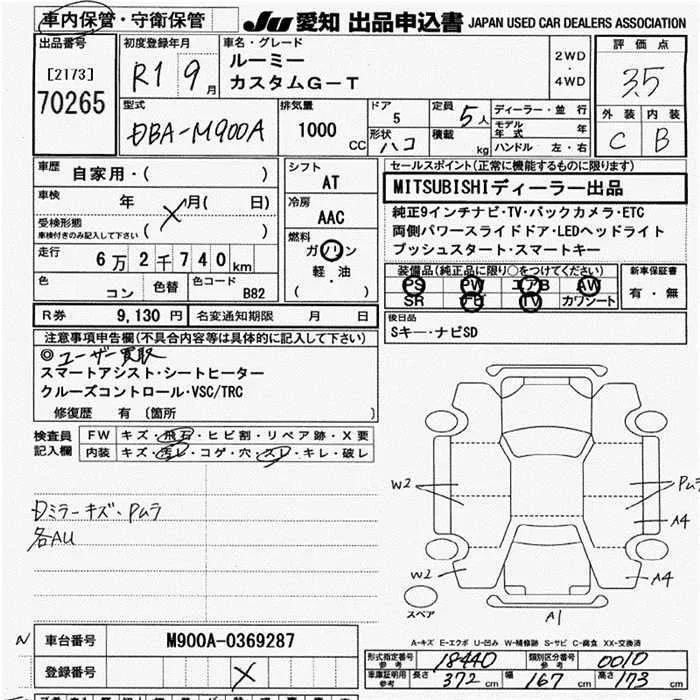 車内保管・守衛保管
JU 愛知 出品申込書 JAPAN USED CAR DEALERS ASSOCIATION
出品番号
[2173]
70265
初度登録年月
R1 9 月
車名・グレード
ルーミー
カスタムG-T
2WD
・
4WD
評価点
3.5
外装 内装
C B
型式
DBA-M900A
排気量
1000 CC
ドア
5
定員
5 人
形状
ハコ
積載
kg
ディーラー・並行
モデル年式 年
ハンドル 左・右
車歴
自家用・( )
車検
年 月( 日)
受検形態
車検付きのみ記入して下さい ( )
走行
6万2千740km
色
コン
色替
色コード
B82
シフト
AT
冷房
AAC
燃料
ガソリン
軽・油
( )
セールスポイント(正常に機能するものに限ります)
MITSUBISHIディーラー出品
純正9インチナビ・TV・バックカメラ・ETC
両側パワースライドドア・LEDヘッドライト
プッシュスタート・スマートキー
装備品(純正品に限り○をつけてください)
PS PW エアB AW
SR ナビ TV カワシート
新車保証書
有・無
R券 9,130 円 名変通知期限 月 日
後日品
Sキー・ナビSD
注意事項申告欄(不具合内容等は具体的に記入して下さい)
◎ユーザー買取
スマートアシスト・シートヒーター
クルーズコントロール・VSC/TRC
修復歴 有 〔箇所 〕
検査員
記入欄
FW キズ・飛石・ヒビ割・リペア跡・X要
内装 キズ・汚レ・コゲ・穴・スレ・キレ・破レ
Dミラーキズ・Pムラ
各AU
W2
Pムラ
A4
W2
A4
スペア
A1
A-キズ E-エクボ U-凹み W-補修跡 S-サビ C-腐食 XX-交換済
N 車台番号 M900A-0369287
登録番号
形式指定番号
参考
18440
類別区分番号
参考
0010
車庫証明用
参考
長さ 372 cm 幅 167 cm 高さ 173 cm